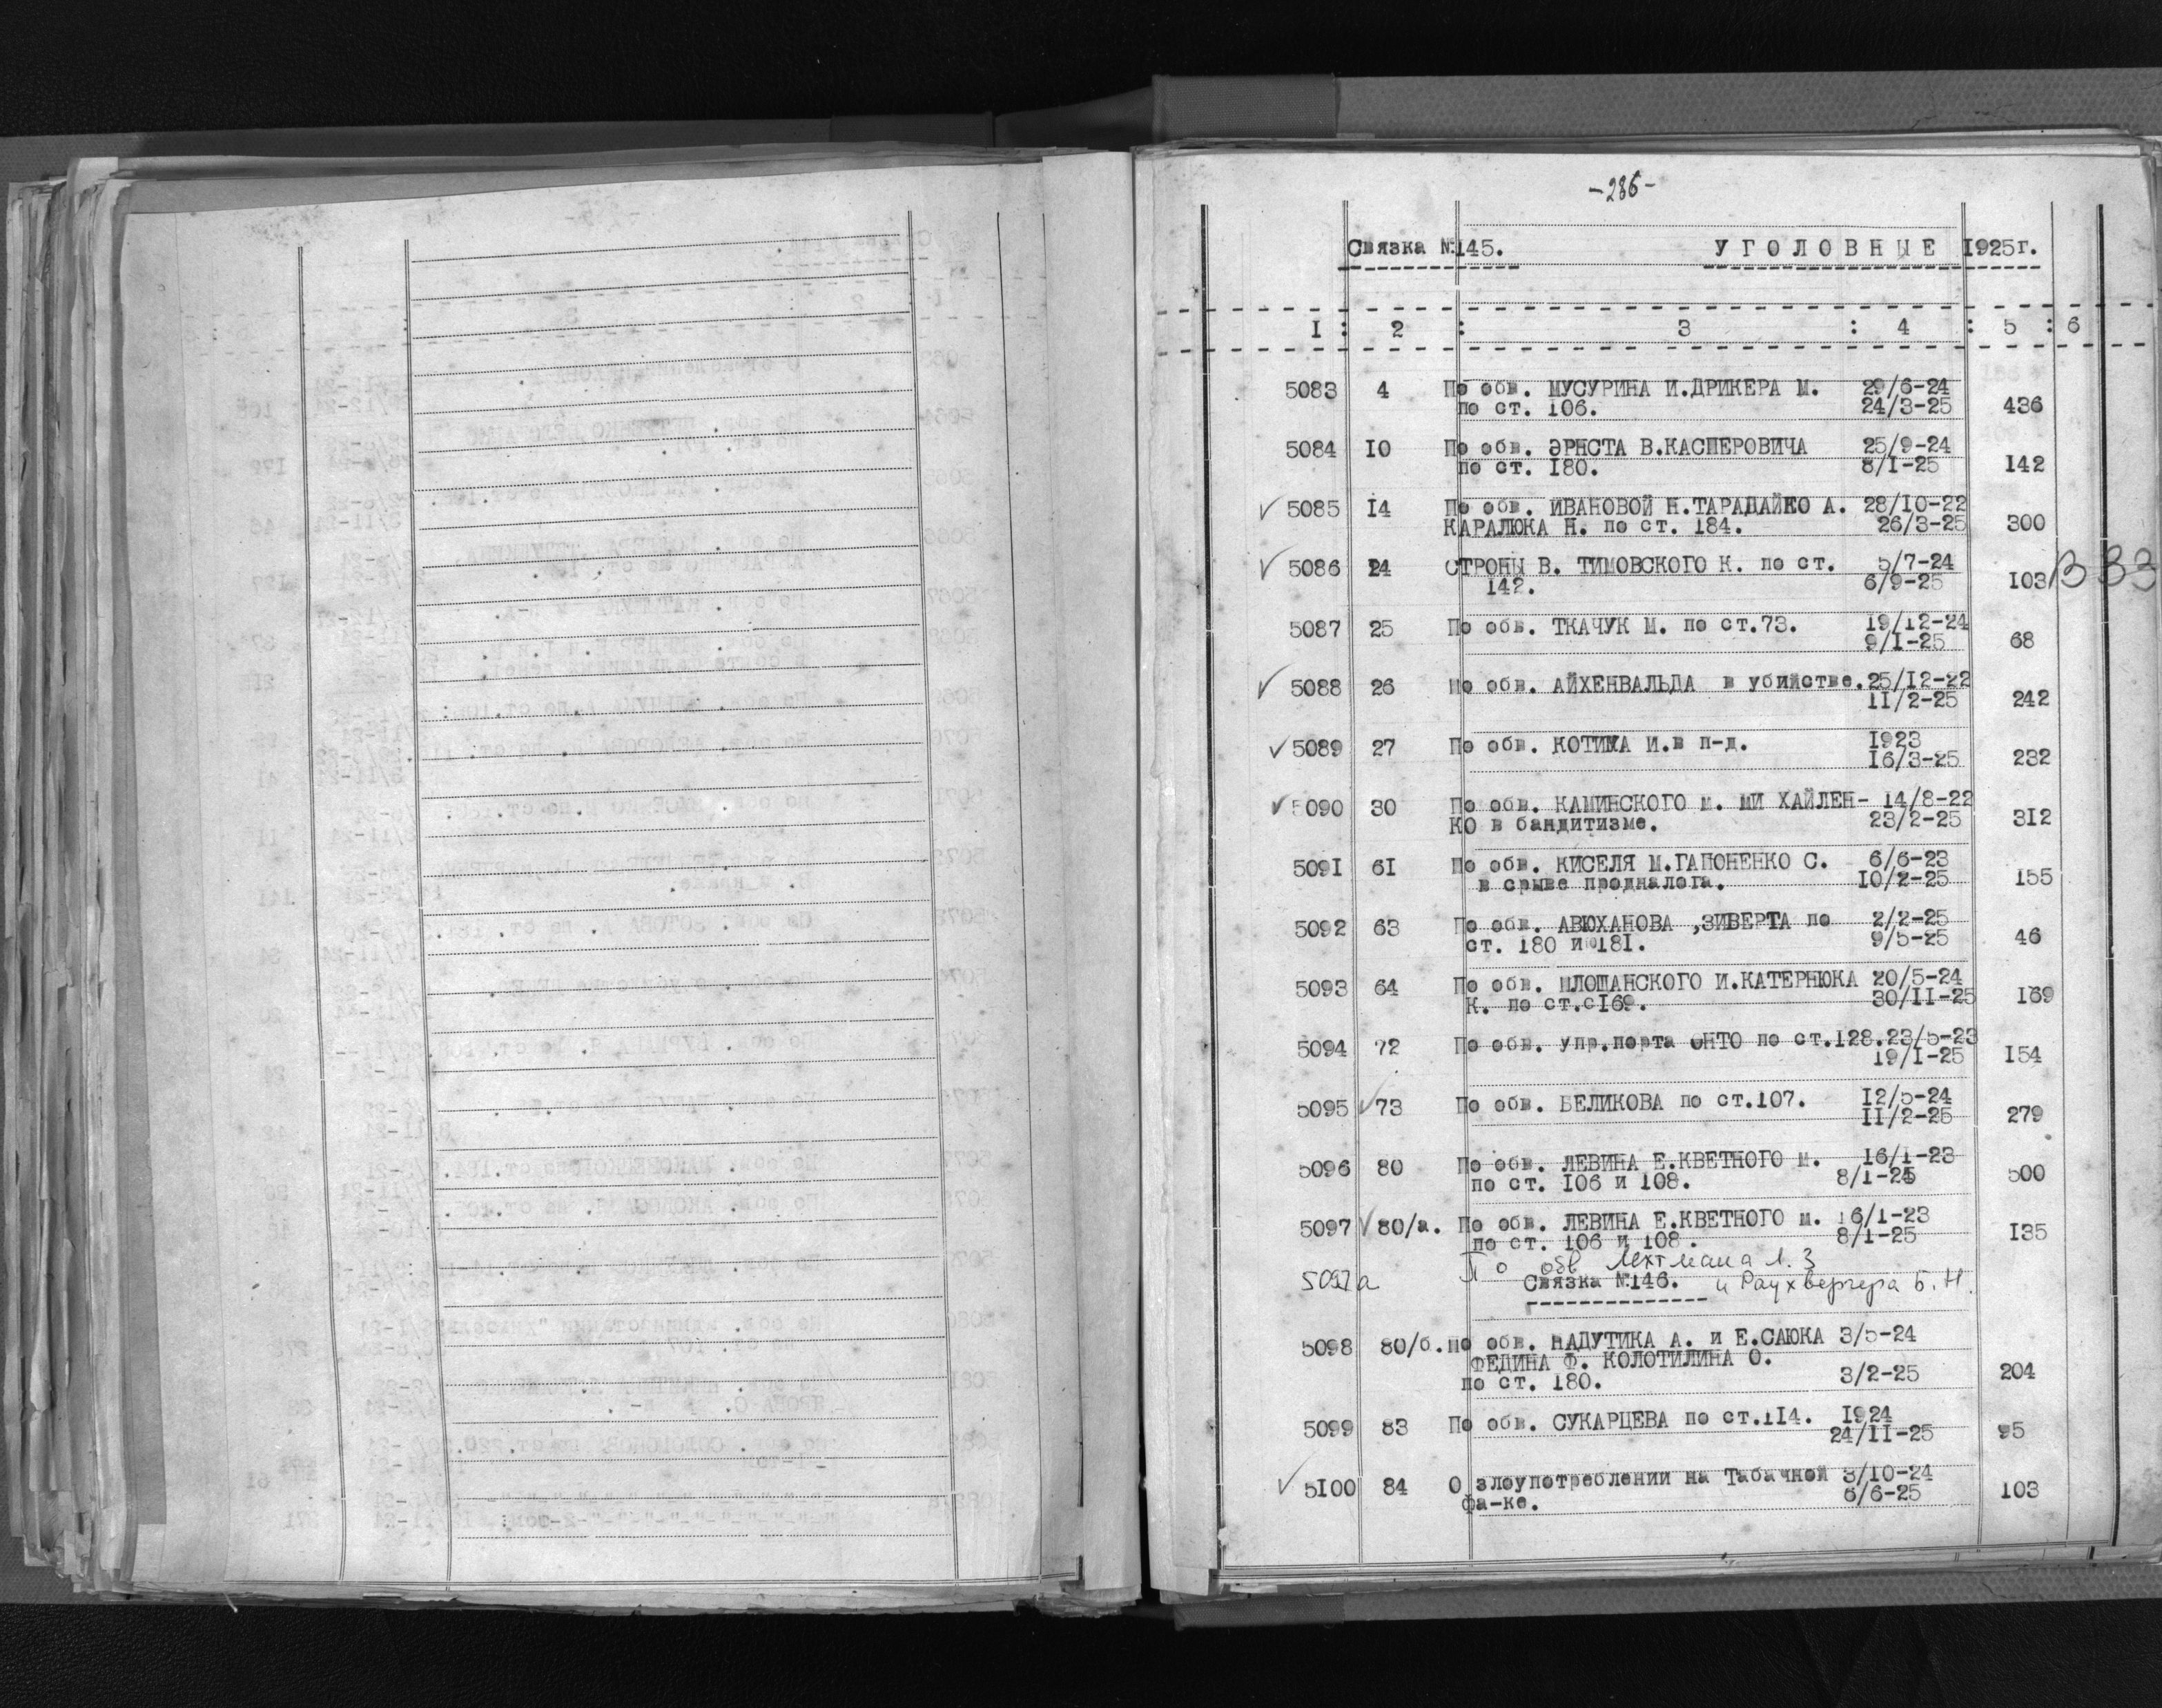 -286-
Связка №145. УГОЛОВНЫЕ 1925г.
I : 2 : 3 : 4 : 5 : 6
5083 4 По обв. МУСУРИНА И.ДРИКЕРА М. 29/6-24
по ст. 106. 24/3-25 436
5084 10 По обв. ЭРНСТА В.КАСПЕРОВИЧА 25/9-24
по ст. 180. 8/I-25 142
✓ 5085 14 По обв. ИВАНОВОЙ Н.ТАРАДАЙКО А. 28/10-22
КАРАЛЮКА Н. по ст. 184. 26/3-25 300
✓ 5086 24 СТРОНЫ В. ТИМОВСКОГО К. по ст. 5/7-24
142. 6/9-25 103
5087 25 По обв. ТКАЧУК М. по ст.73. 19/12-24
9/I-25 68
✓ 5088 26 По обв. АЙХЕНВАЛЬДА в убийстве. 25/12-22
11/2-25 242
✓ 5089 27 По обв. КОТИКА И.в п-д. 1923
16/3-25 232
✓ 5090 30 По обв. КАМИНСКОГО М. МИ ХАЙЛЕН- 14/8-22
КО в бандитизме. 23/2-25 312
5091 61 По обв. КИСЕЛЯ М.ГАПОНЕНКО С. 6/6-23
в срыве продналога. 10/2-25 155
5092 63 По обв. АВЮХАНОВА ,ЗИВЕРТА по 2/2-25
ст. 180 и 181. 9/5-25 46
5093 64 По обв. ШЛОШАНСКОГО И.КАТЕРНЮКА 20/5-24
К. по ст.с169. 30/11-25 169
5094 72 По обв. упр.порта ОНТО по ст.128. 23/5-23
19/I-25 154
5095 ✓ 73 По обв. БЕЛИКОВА по ст.107. 12/5-24
11/2-25 279
5096 80 По обв. ЛЕВИНА Е.КВЕТНОГО М. 16/1-23
по ст. 106 и 108. 8/1-25 500
5097 ✓ 80/а. По обв. ЛЕВИНА Е.КВЕТНОГО М. 16/1-23
по ст. 106 и 108. 8/1-25 135
5097а По обв Лехтмана Л. З
Связка №146. и Раухвергера Б. Н.
5098 80/б. По обв. НАДУТИКА А. и Е.САЮКА 3/5-24
ФЕДИНА Ф. КОЛОТИЛИНА О.
по ст. 180. 3/2-25 204
5099 83 По обв. СУКАРЦЕВА по ст.114. 1924
24/11-25 95
✓ 5100 84 О злоупотреблении на Табачной 3/10-24
фа-ке. 6/6-25 103